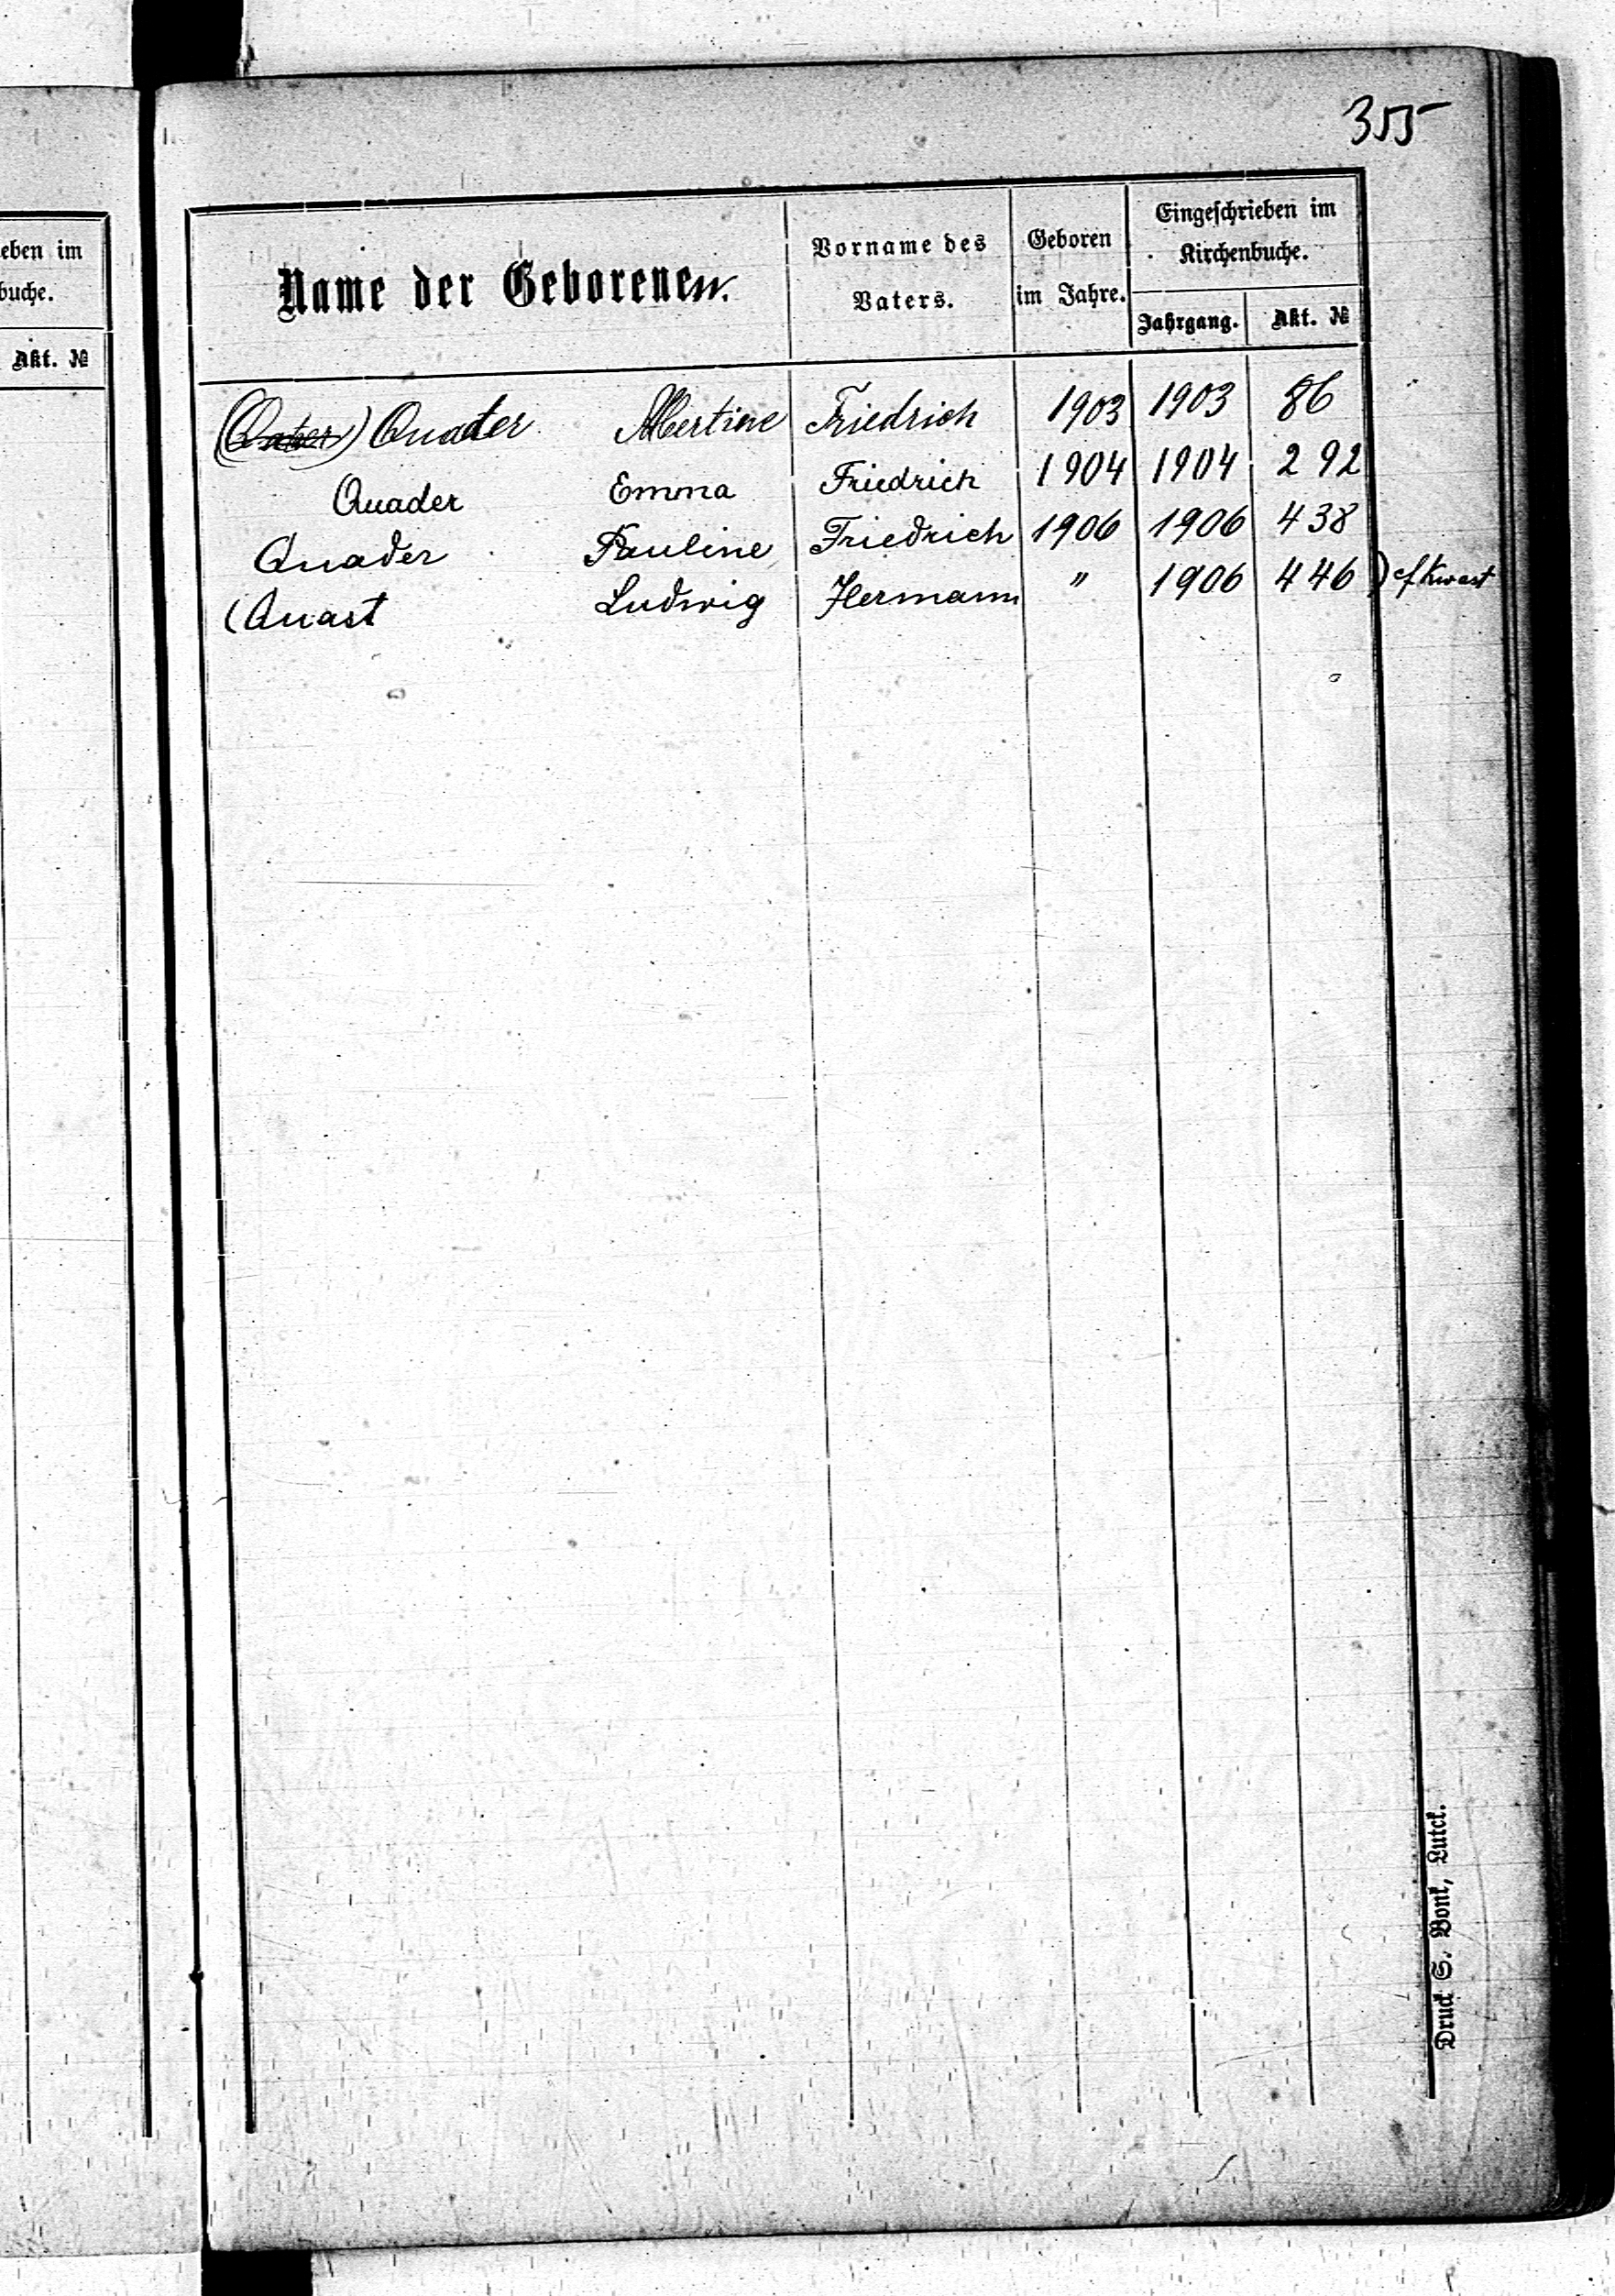 355
eben im
buche.
Akt. №
Name der Geborenen.
Vorname des Vaters.
Geboren im Jahre.
Eingeschrieben im Kirchenbuche.
Jahrgang. Akt. №
Quader Albertine Friedrich 1903 1903 86
Quader Emma Friedrich 1904 1904 292
Quader Pauline Friedrich 1906 1906 438
(Quast Ludwig Hermann " 1906 446 ) cf Kwast
Druck S. Bonk, Lutck.